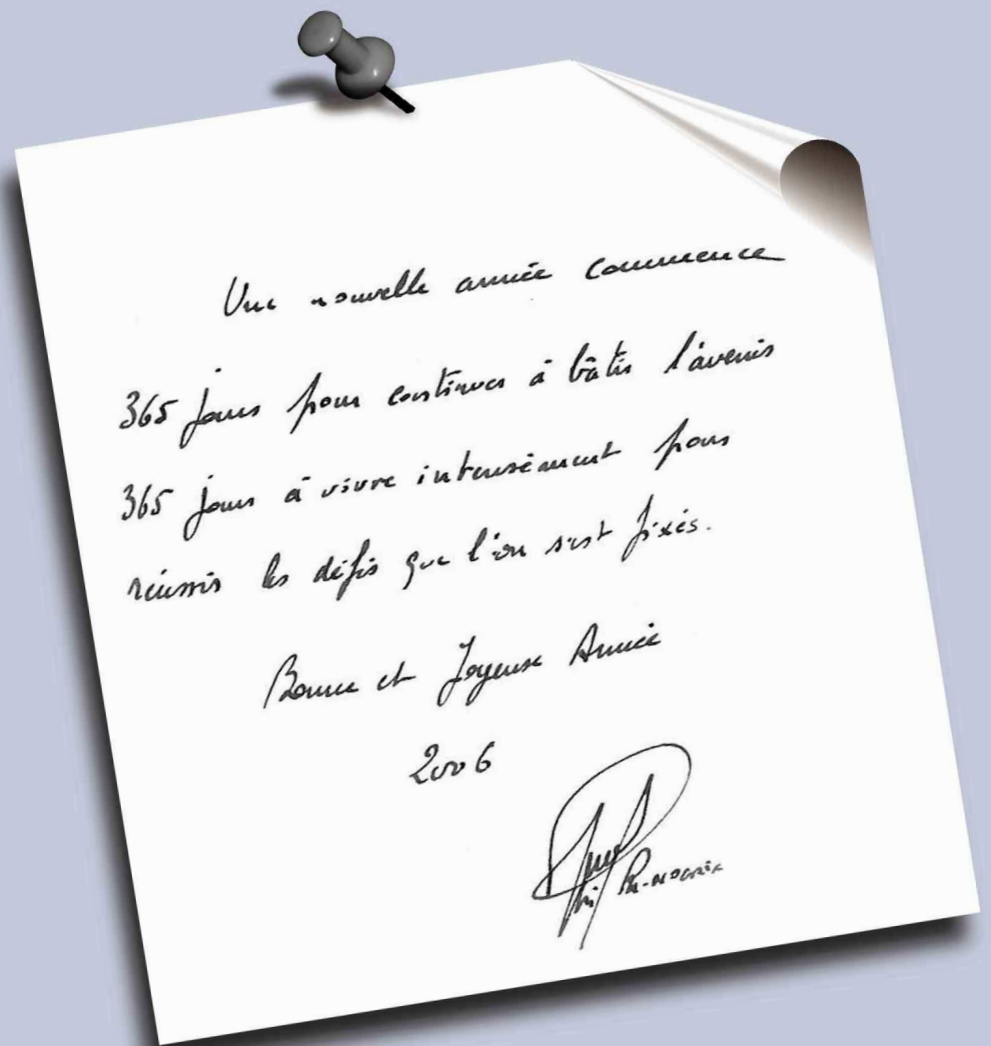 Une nouvelle année commence
365 jours pour continuer à bâtir l'avenir
365 jours à vivre intensément pour
réussir les défis que l'on s'est fixés.
Bonne et Joyeuse Année
2006